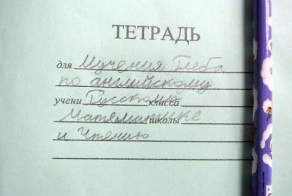 ТЕТРАДЬ
для Мучения Глеба
по английскому
учени Русскому класса
Матемалыке школы
и Чтению